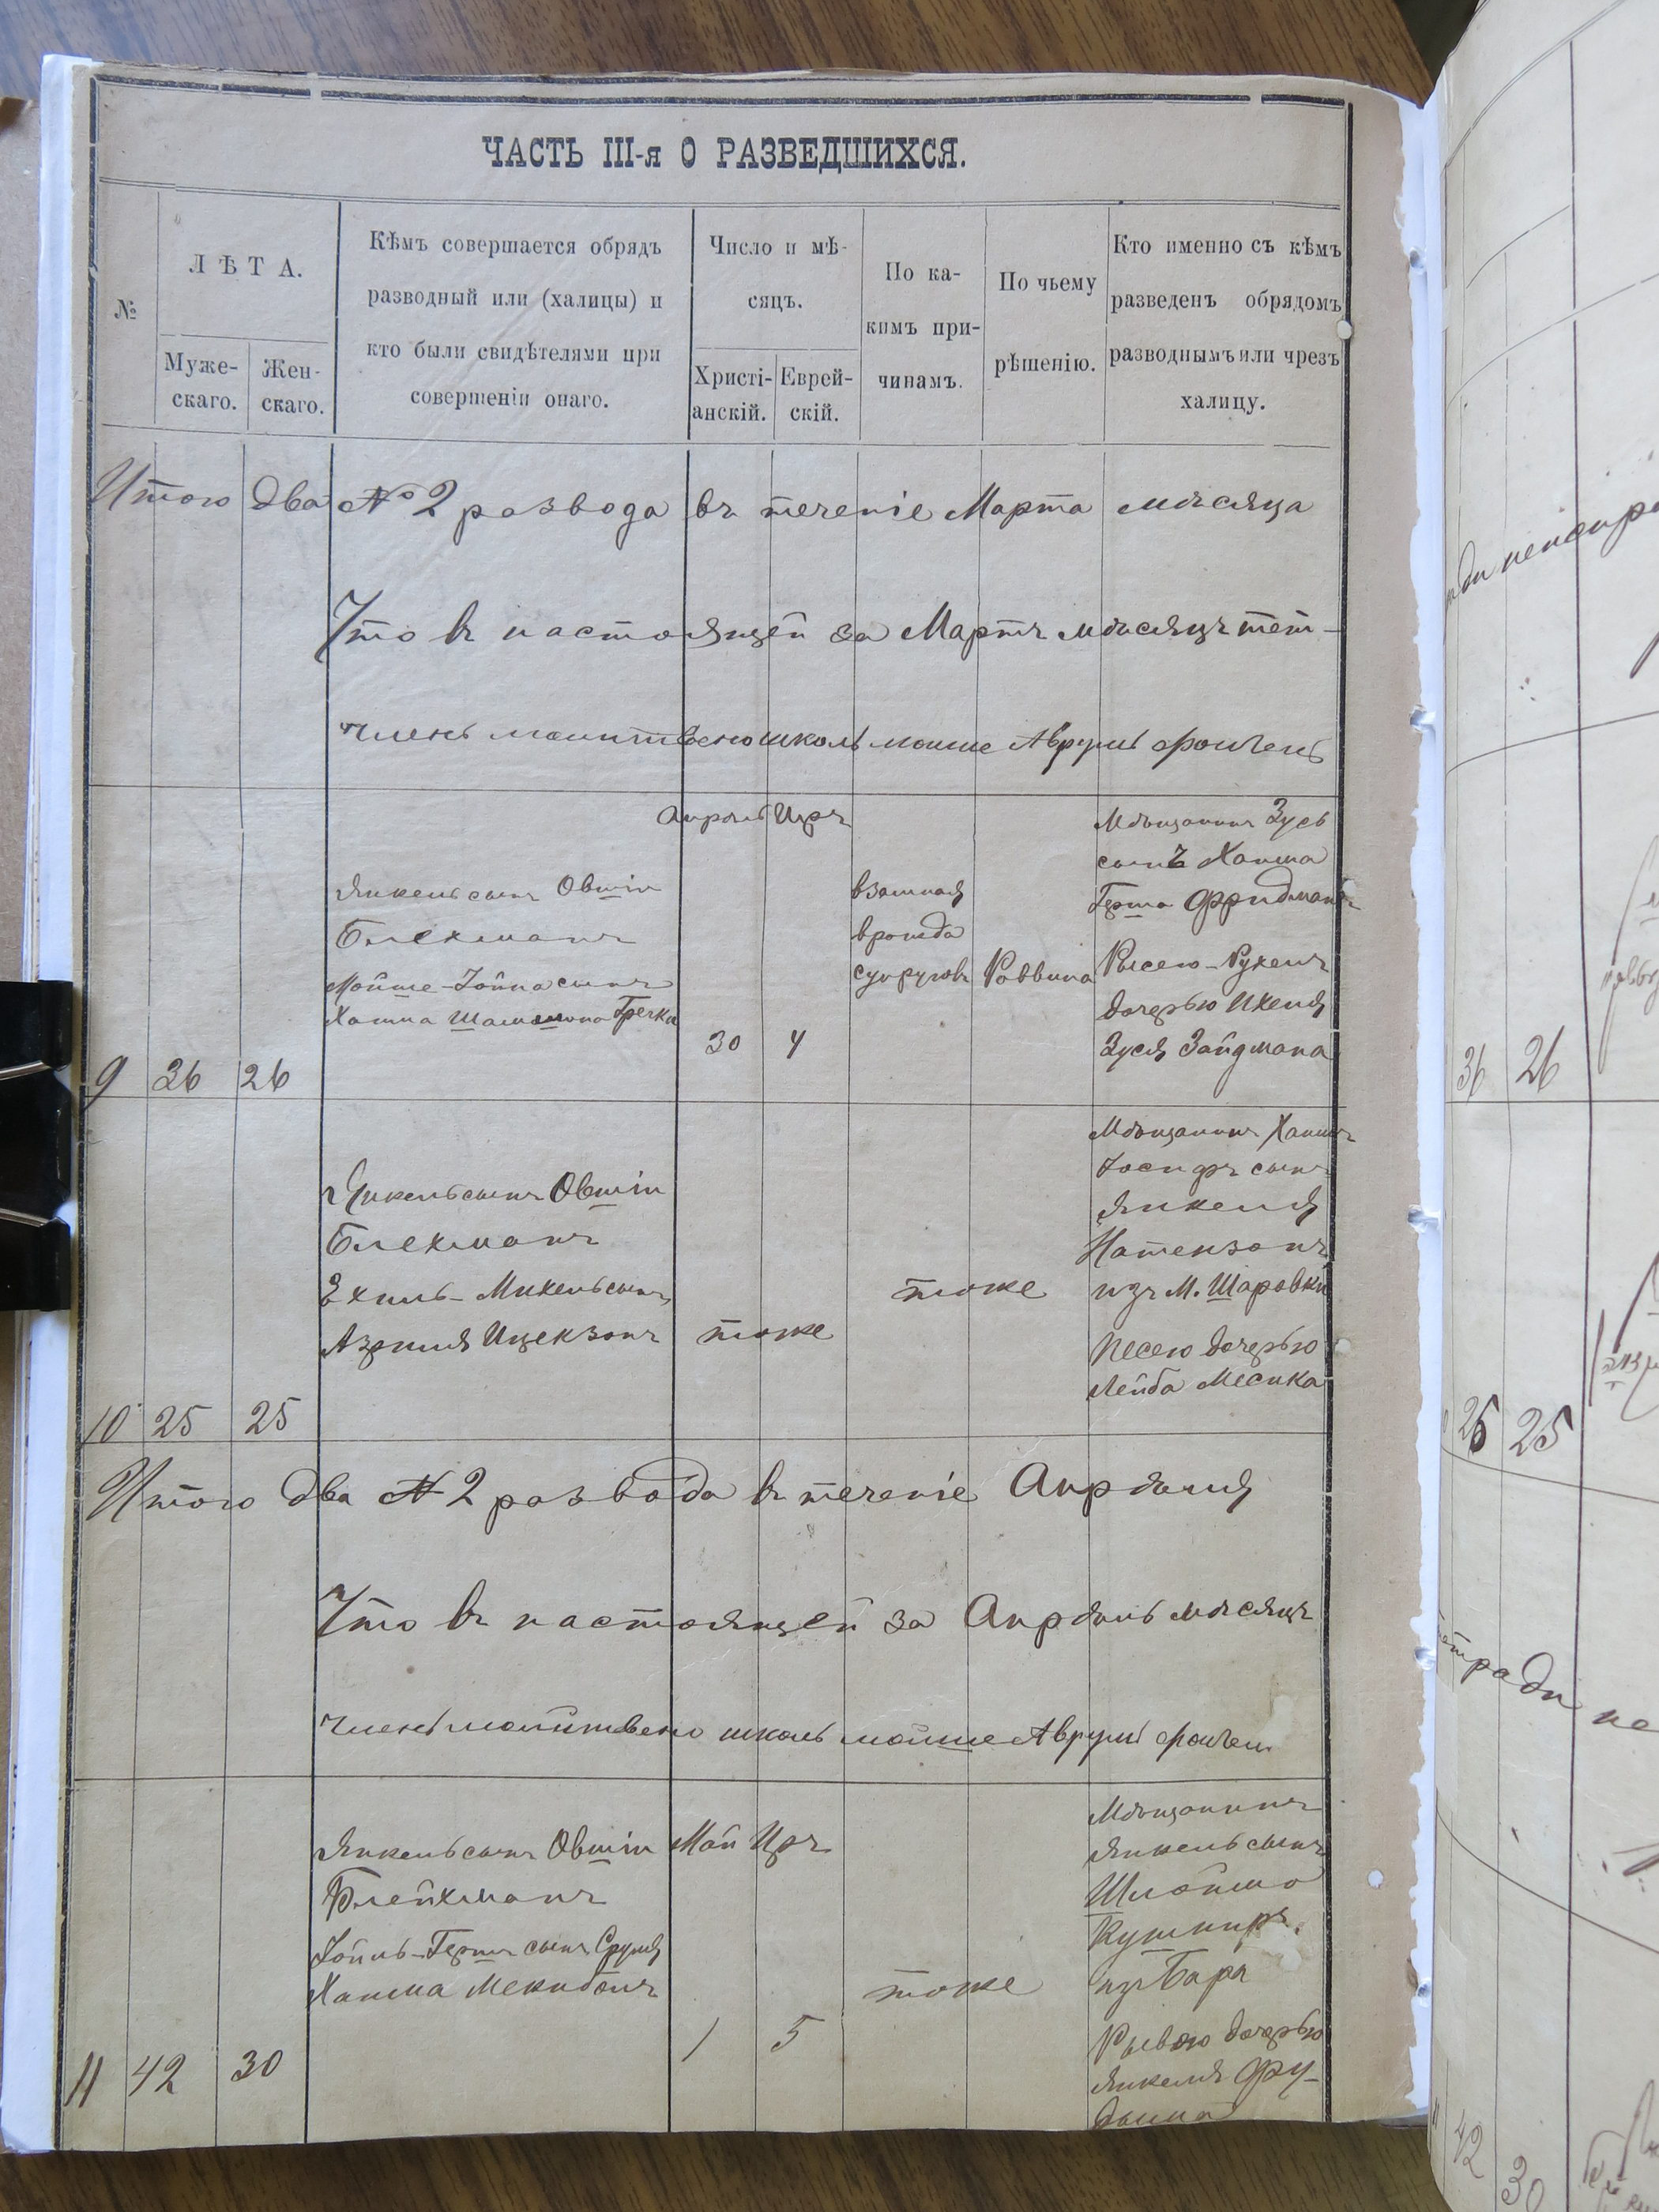 ЧАСТЬ III-я О РАЗВЕДШИХСЯ.
№
ЛѢТА.
Муже-
скаго.
Жен-
скаго.
Кѣмъ совершается обрядъ
разводный или (халицы) и
кто были свидѣтелями при
совершеніи онаго.
Число и мѣ-
сяцъ.
Христі-
анскій.
Еврей-
скій.
По ка-
кимъ при-
чинамъ.
По чьему
рѣшенію.
Кто именно съ кѣмъ
разведенъ обрядомъ
разводнымъ или чрезъ
халицу.
Итого два № 2 развода въ теченіе Марта мѣсяца
Что въ настоящей за Мартъ мѣсяцъ тет-
Членъ школы Аврумъ
9 36 26
Янкель сынъ Овшія
Блехманъ
Мойше-Іойна сынъ
Хаима Гречки
Апрѣль Иръ
30 4
взаимная
вражда
супруговъ
Раввина
Мѣщанинъ Зусь
сынъ Хаима
Герша Фридманъ
Рысею-Рухель
дочерью Ихеля
Зуся Зайдмана
10 25 25
Янкель сынъ Овшія
Блехманъ
Ехиль-Михель сынъ
Азриля Ицекзонъ
тоже
тоже
Мѣщанинъ Хаимъ
Іосифъ сынъ
Янкеля
Натензонъ
изъ М. Шаровки
Песею дочерью
Лейба Месика
Итого два № 2 развода въ теченіе Апрѣля
Что въ настоящей за Апрѣль мѣсяцъ
Членъ школы мойше Аврумъ
11 42 30
Янкель сынъ Овшія
Блейхманъ
Іойль-Гершъ сынъ Сруля
Хаима
Май Иръ
1 5
тоже
Мѣщанинъ
Янкель сынъ
Шлойма
Кушниръ
изъ Бара
Рывою дочерью
Янкеля Фу-
36 26
25 25
тради не
42
30